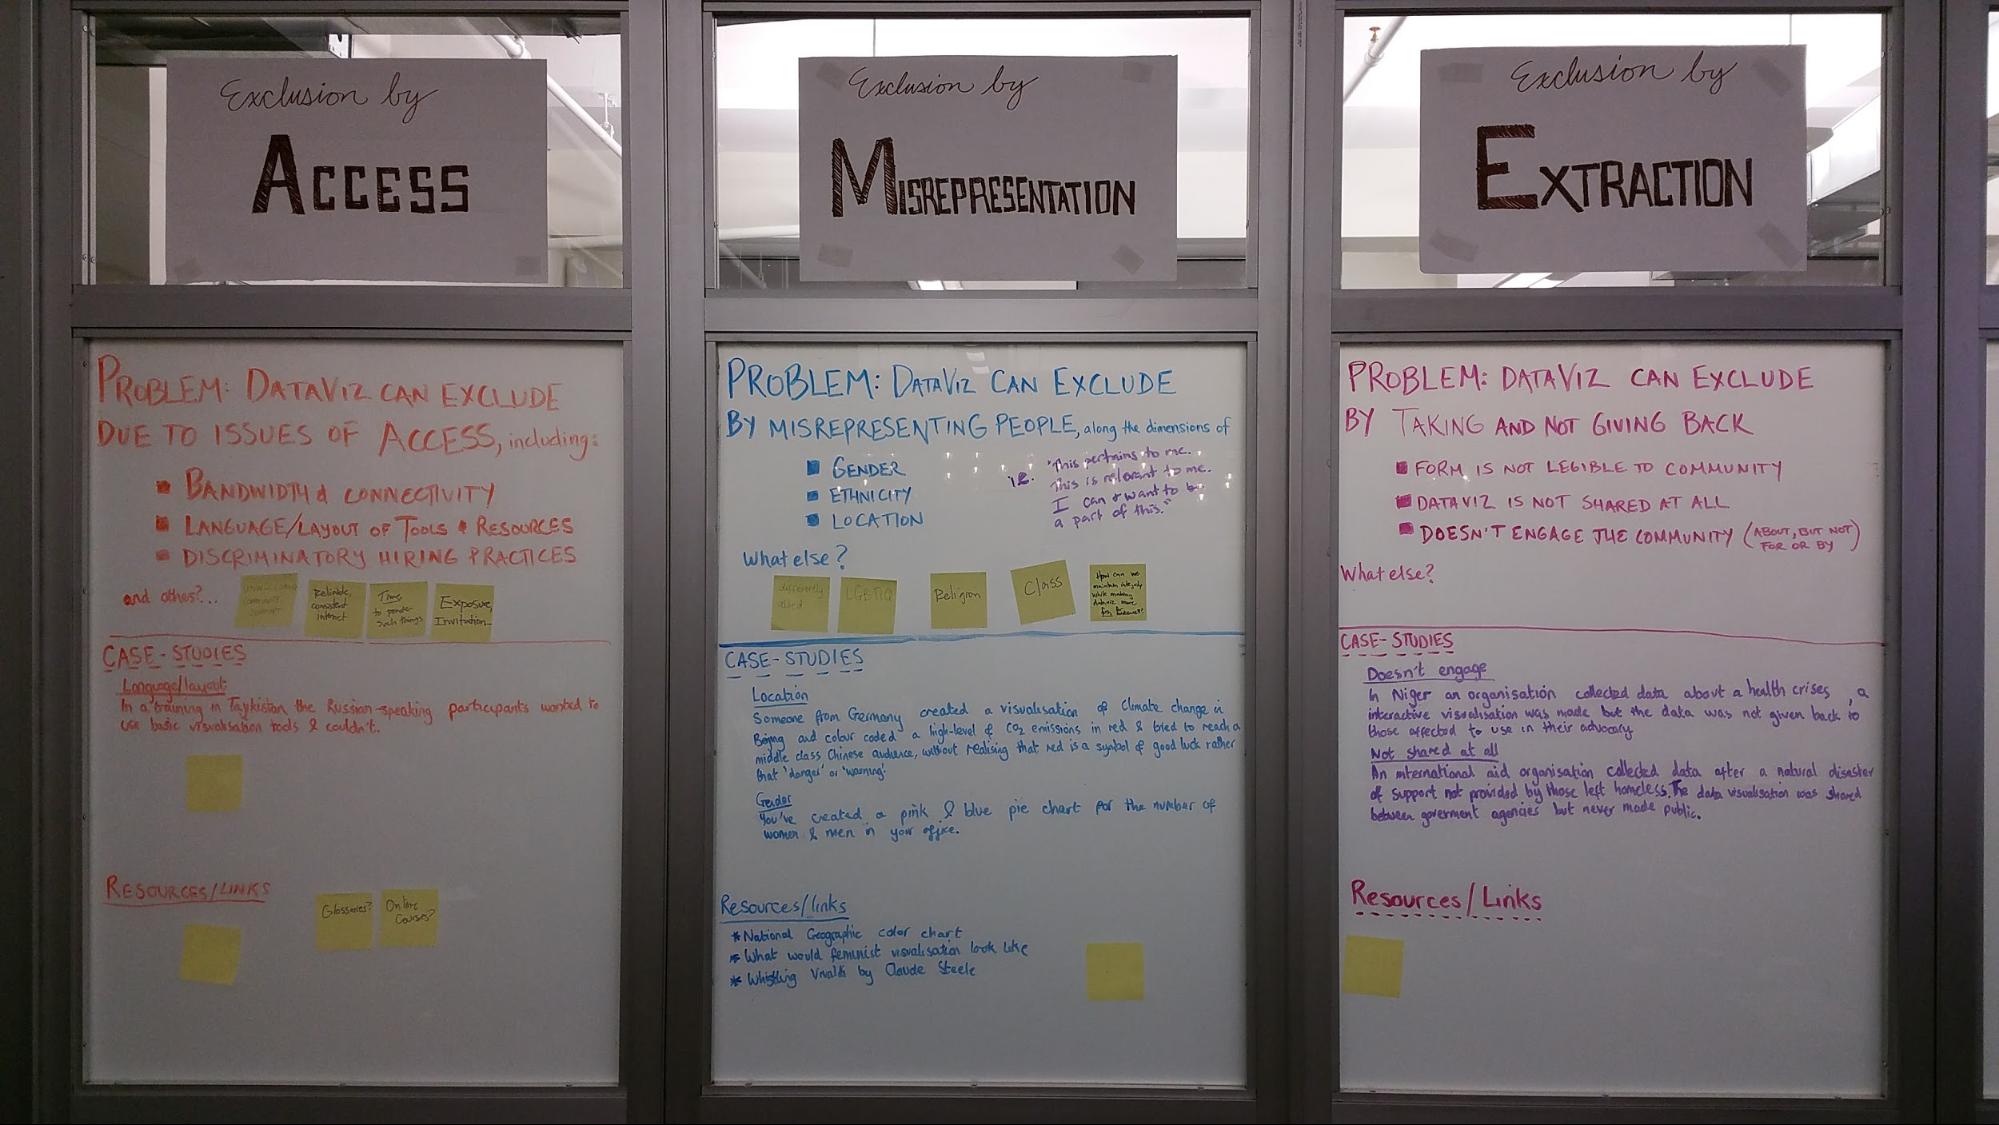 Exclusion by
ACCESS
PROBLEM: DATAVIZ CAN EXCLUDE
DUE TO ISSUES OF ACCESS, including:
BANDWIDTH & CONNECTIVITY
LANGUAGE/LAYOUT OF TOOLS & RESOURCES
DISCRIMINATORY HIRING PRACTICES
and others?...
Reliable,
consistent
internet
Time
to ponder
such things
Exposure,
Invitation
CASE-STUDIES
Language/layout
In a training in Tajikistan the Russian-speaking participants wanted to
use basic visualisation tools & couldn't.
RESOURCES/LINKS
Glossaries?
Online
Courses?
Exclusion by
MISREPRESENTATION
PROBLEM: DATAVIZ CAN EXCLUDE
BY MISREPRESENTING PEOPLE, along the dimensions of
GENDER
ETHNICITY
LOCATION
i.e. "This pertains to me.
This is relevant to me.
I can & want to be
a part of this."
What else?
differently
abled
LGBTIQ
Religion
Class
How can we
maintain integrity
while making
dataviz more
CASE-STUDIES
Location
Someone from Germany created a visualisation of climate change in
Bejing and colour coded a high-level of CO2 emissions in red & tried to reach a
middle class Chinese audience, without realising that red is a symbol of good luck rather
that 'danger' or 'warning'.
Gender
You've created a pink & blue pie chart for the number of
women & men in your office.
Resources/links
* National Geographic color chart
* What would feminist visualisation look like
* Whistling Vivaldi by Claude Steele
Exclusion by
EXTRACTION
PROBLEM: DATAVIZ CAN EXCLUDE
BY TAKING AND NOT GIVING BACK
FORM IS NOT LEGIBLE TO COMMUNITY
DATAVIZ IS NOT SHARED AT ALL
DOESN'T ENGAGE THE COMMUNITY (ABOUT, BUT NOT
FOR OR BY)
What else?
CASE-STUDIES
Doesn't engage
In Niger an organisation collected data about a health crises, a
interactive visualisation was made but the data was not given back to
those affected to use in their advocacy
Not shared at all
An international aid organisation collected data after a natural disaster
of support not provided by those left homeless. The data visualisation was shared
between goverment agencies but never made public.
Resources/Links